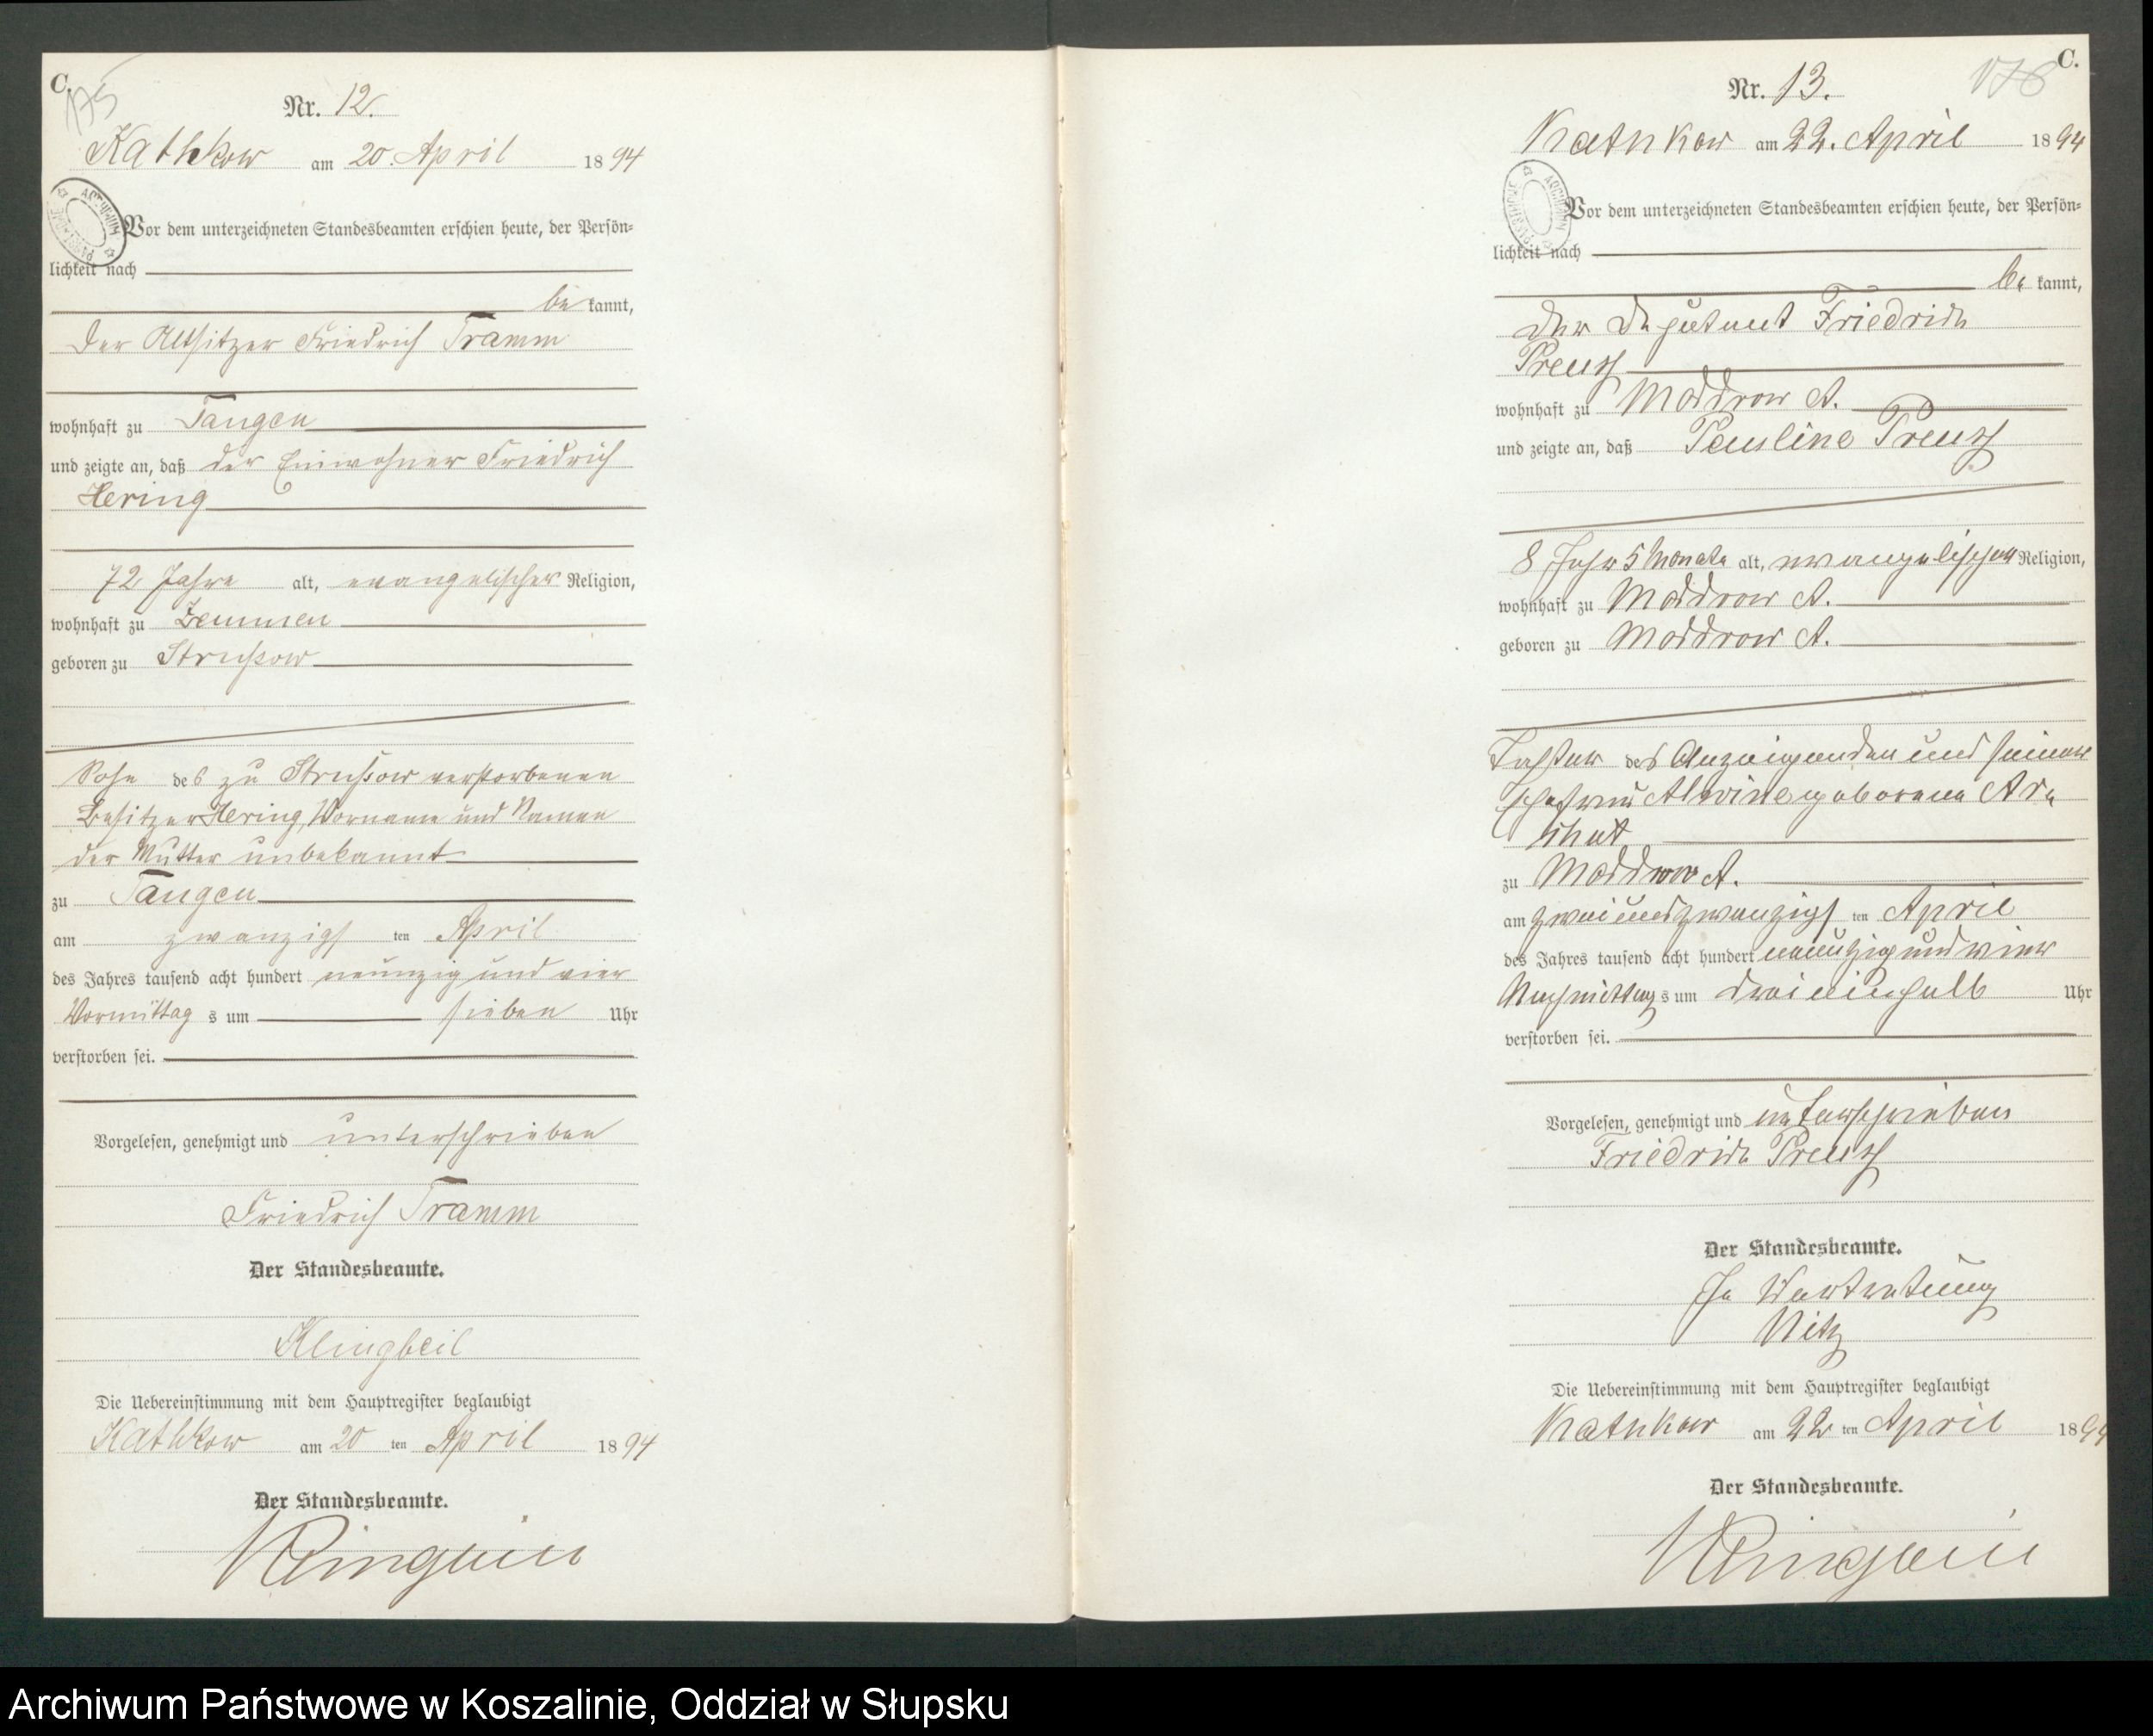 C.
175
Nr. 12.
Kathkow am 20. April 1894
Vor dem unterzeichneten Standesbeamten erschien heute, der Persön-
lichkeit nach
be kannt,
der Altsitzer Friedrich Tramm
wohnhaft zu Tangen
und zeigte an, daß der Einwohner Friedrich
Hering
72 Jahre alt, evangelischer Religion,
wohnhaft zu Zemmen
geboren zu Strussow
Sohn des zu Strussow verstorbenen
Besitzer Hering, Vorname und Namen
der Mutter unbekannt
zu Tangen
am zwanzigsten April
des Jahres tausend acht hundert neunzig und vier
Vormittags um sieben Uhr
verstorben sei.
Vorgelesen, genehmigt und unterschrieben
Friedrich Tramm
Der Standesbeamte.
Klingbeil
Die Uebereinstimmung mit dem Hauptregister beglaubigt
Kathkow am 20 ten April 1894
Der Standesbeamte.
Klingbeil
C.
176
Nr. 13.
Kathkow am 22. April 1894
Vor dem unterzeichneten Standesbeamten erschien heute, der Persön-
lichkeit nach
be kannt,
der Deputant Friedrich
Preuss
wohnhaft zu Moddrow A.
und zeigte an, daß Pauline Preuss
8 Jahr 5 Monate alt, evangelischen Religion,
wohnhaft zu Moddrow A.
geboren zu Moddrow A.
Tochter des Anzeigenden und seiner
Ehefrau Alwine geborene
zu Moddrow A.
am zweiundzwanzigsten April
des Jahres tausend acht hundert neunzig und vier
Nachmittags um drei einhalb Uhr
verstorben sei.
Vorgelesen, genehmigt und unterschrieben
Friedrich Preuss
Der Standesbeamte.
In Vertretung
Nitz
Die Uebereinstimmung mit dem Hauptregister beglaubigt
Kathkow am 22 ten April 1894
Der Standesbeamte.
Klingbeil
Archiwum Państwowe w Koszalinie, Oddział w Słupsku